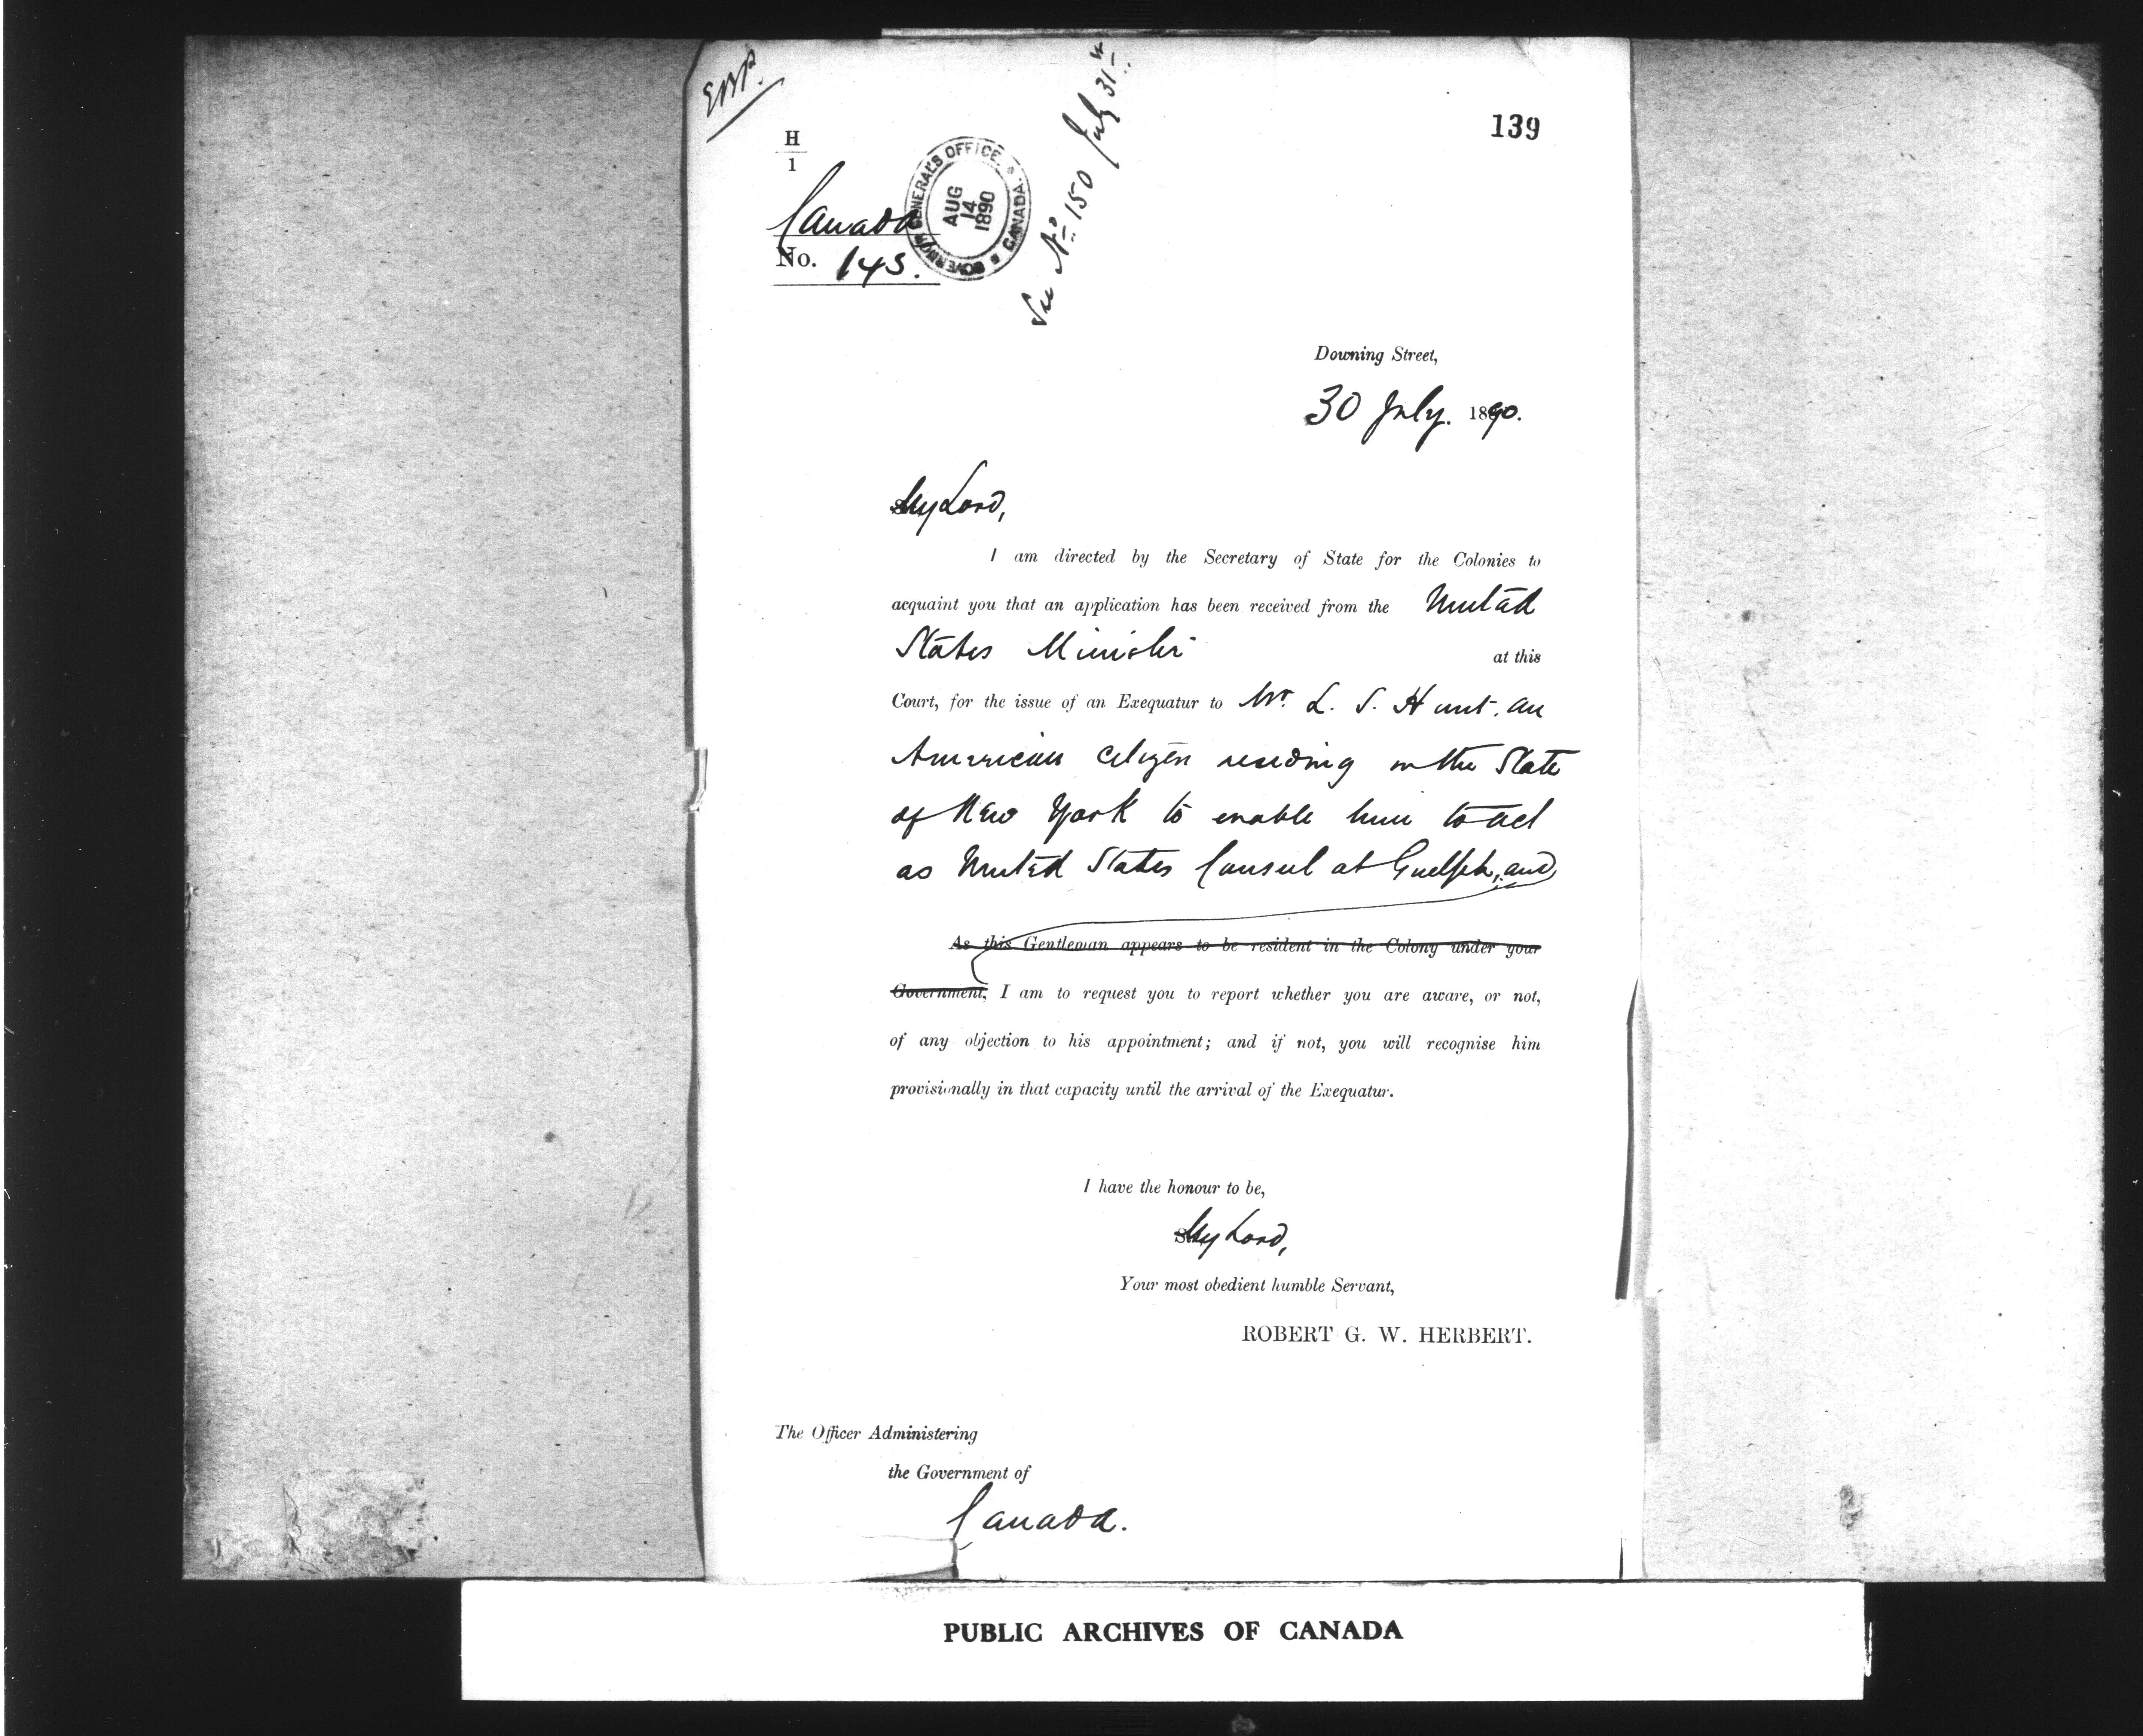 139
H
1
Canada
No. 145.
GOVERNOR GENERAL'S OFFICE. CANADA.
AUG
14
1890
See No 150 July 31st
Downing Street,
30 July. 1890.
My Lord,
I am directed by the Secretary of State for the Colonies to
acquaint you that an application has been received from the United
States Minister at this
Court, for the issue of an Exequatur to Mr. L. S. Hunt, an
American citizen residing in the State
of New York to enable him to act
as United States Consul at Guelph, and
As this Gentleman appears to be resident in the Colony under your
Government, I am to request you to report whether you are aware, or not,
of any objection to his appointment; and if not, you will recognise him
provisionally in that capacity until the arrival of the Exequatur.
I have the honour to be,
My Lord,
Your most obedient humble Servant,
ROBERT G. W. HERBERT.
The Officer Administering
the Government of
Canada.
PUBLIC ARCHIVES OF CANADA